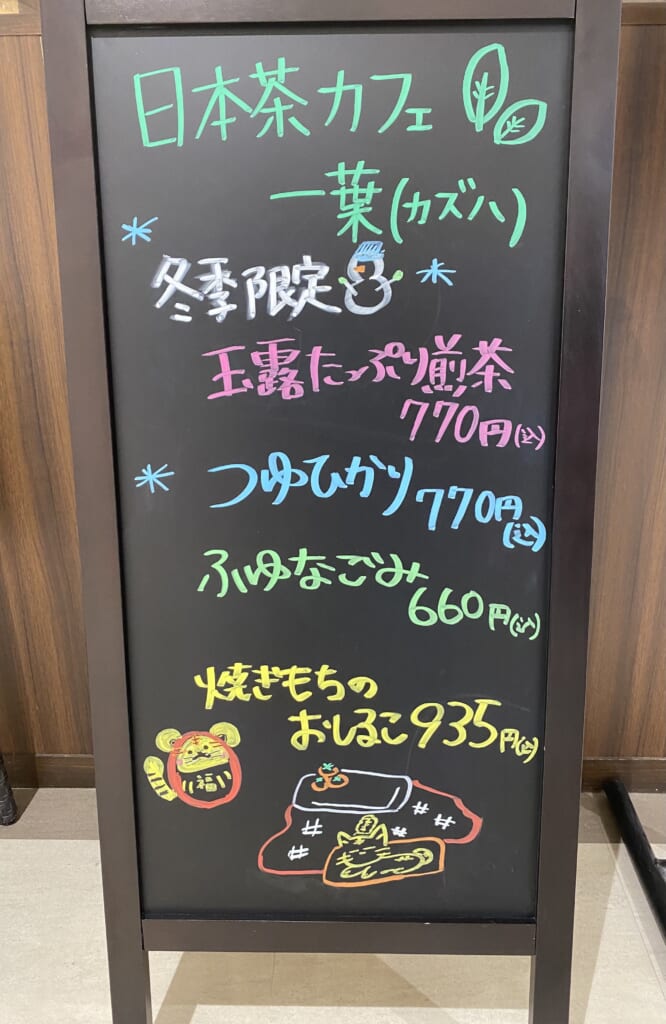 日本茶カフェ
一葉(カズハ)
冬季限定
玉露たっぷり煎茶
770円(込)
つゆひかり 770円(込)
ふゆなごみ
660円(込)
焼ぎもちの
おしるこ 935円(込)
福